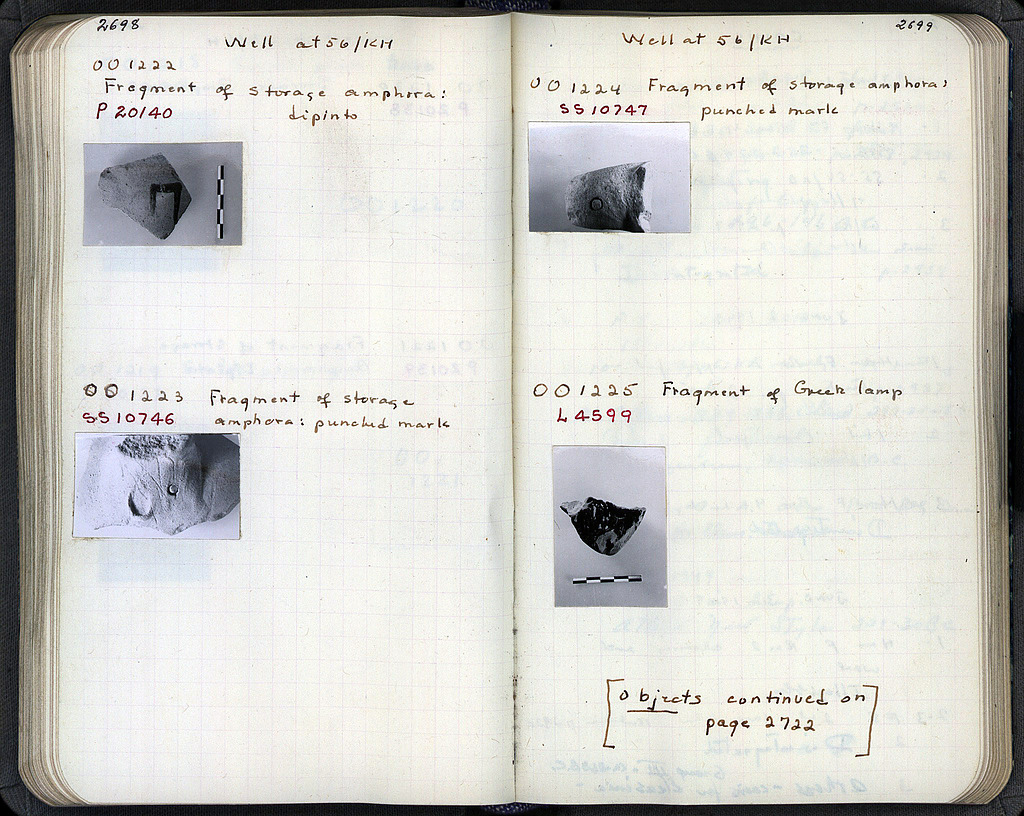 2698
Well at 56/KH
OO 1222
Fragment of storage amphora:
P 20140 dipinto
OO 1223 Fragment of storage
SS 10746 amphora: punched mark
2699
Well at 56/KH
OO 1224 Fragment of storage amphora:
SS 10747 punched mark
OO 1225 Fragment of Greek lamp
L 4599
[Objects continued on
page 2722]